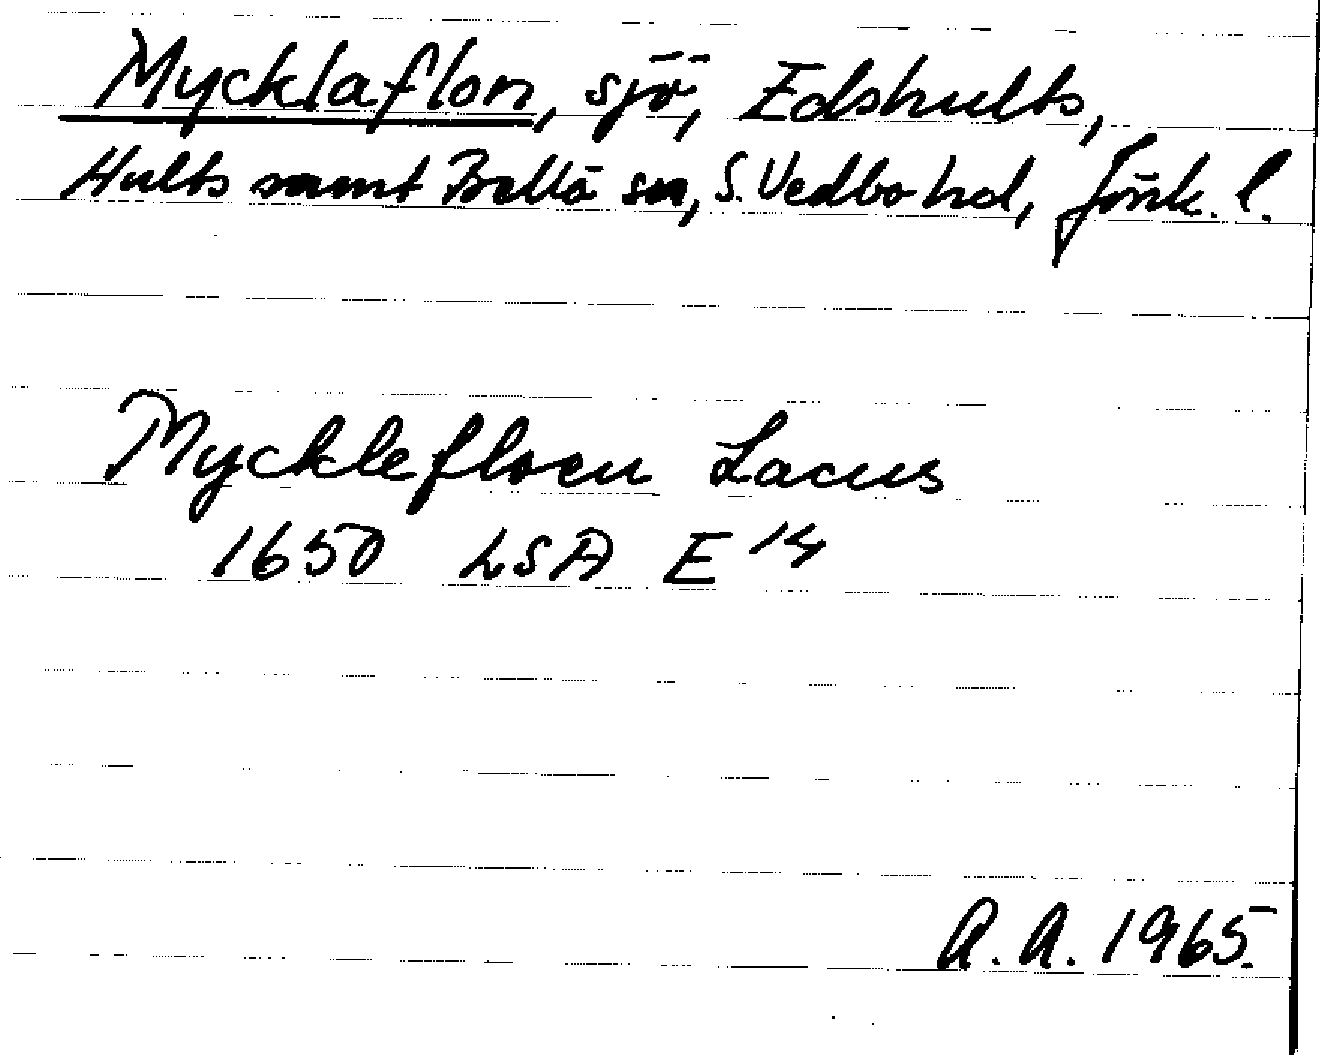 Mycklaflon, sjö, Edshults,
Hults samt Bellö sn, S. Vedbo hd, Jönk. l.
Mycklefloen Lacus
1650 LSA E 14
A. A. 1965.